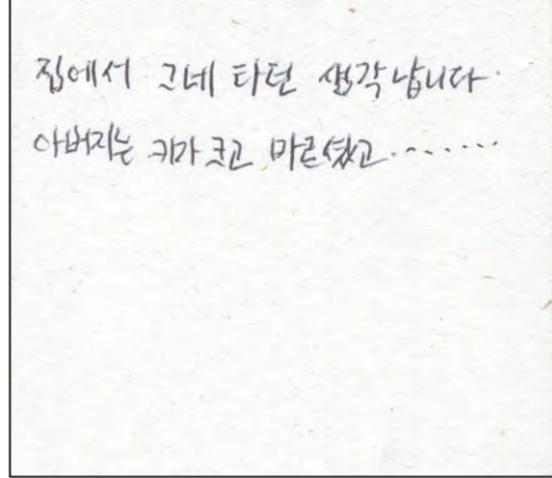 집에서 그네 타던 생각 납니다.
아버지는 키가 크고 마르셨고.......